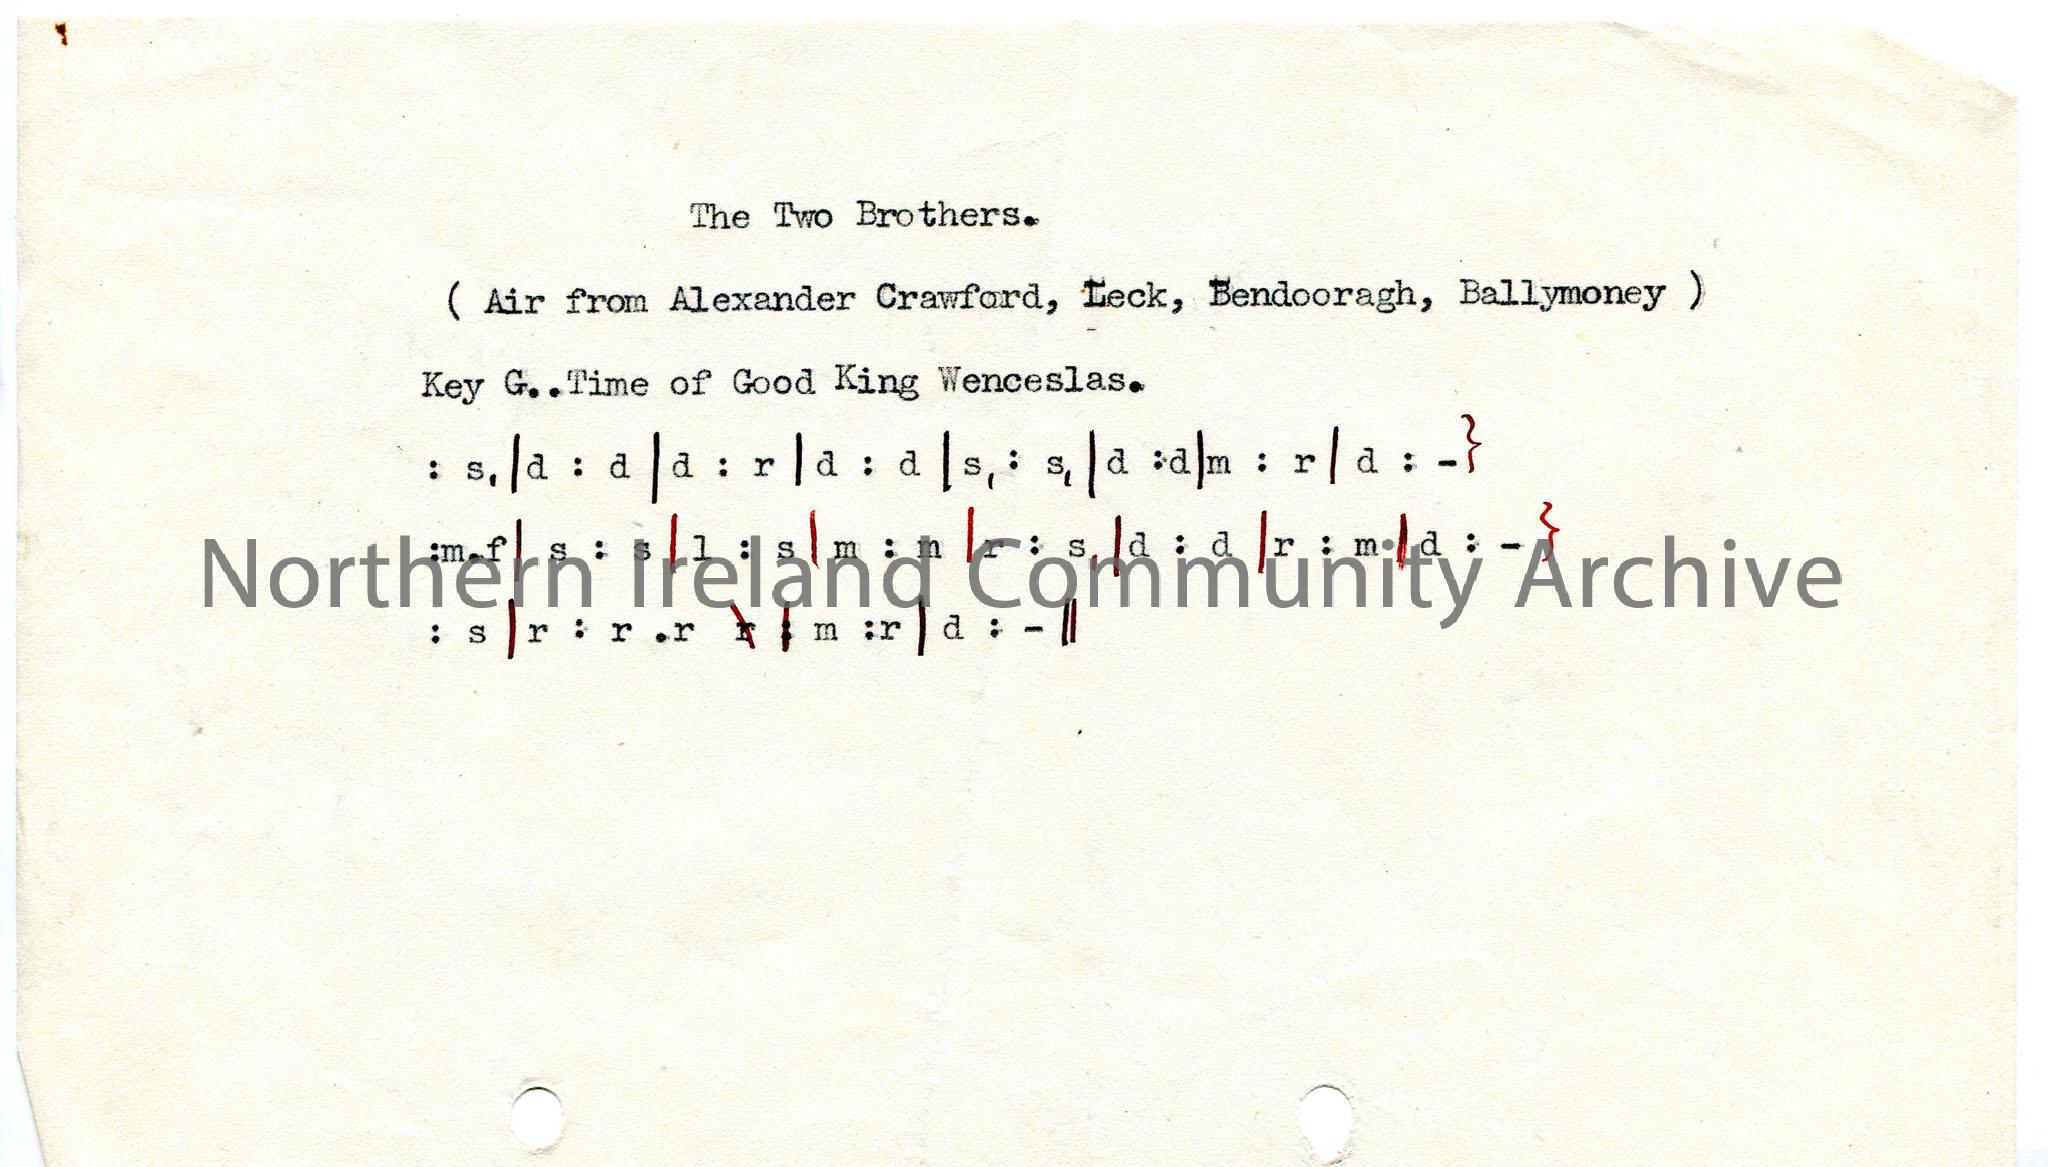 The Two Brothers.
( Air from Alexander Crawford, Leck, Bendooragh, Ballymoney )
Key G..Time of Good King Wenceslas.
: s,|d : d|d : r|d : d|s, : s,|d :d|m : r|d : -}
:m.f| s : s|l : s|m : m|r : s,|d : d|r : m|d : -}
: s|r : r .r r \ | : m :r|d : -||
Northern Ireland Community Archive